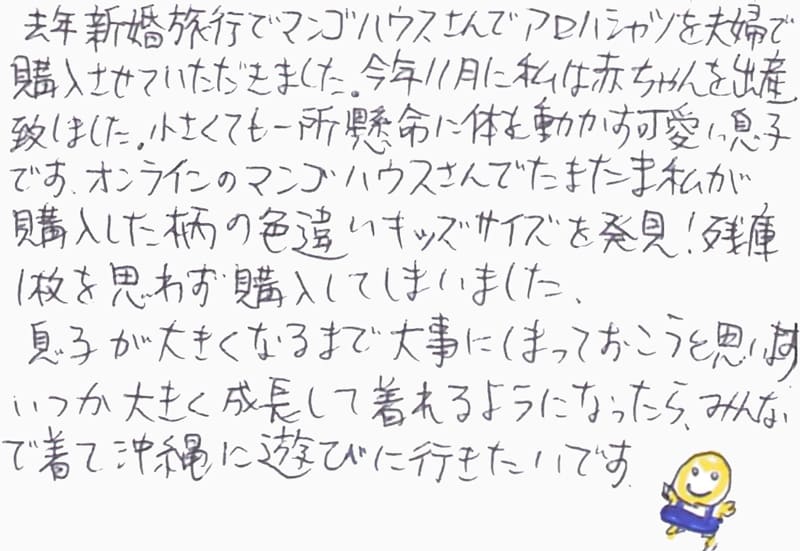 去年新婚旅行でマンゴハウスさんでアロハシャツを夫婦で
購入させていただきました。今年11月に私は赤ちゃんを出産
致しました。小さくても一所懸命に体を動かす可愛い息子
です、オンラインのマンゴハウスさんでたまたま私が
購入した柄の色違いキッズサイズを発見!残庫
1枚を思わず購入してしまいました、
息子が大きくなるまで大事にしまっておこうと思います
いつか大きく成長して着れるようになったら、みんな
で着て沖縄に遊びに行きたいです